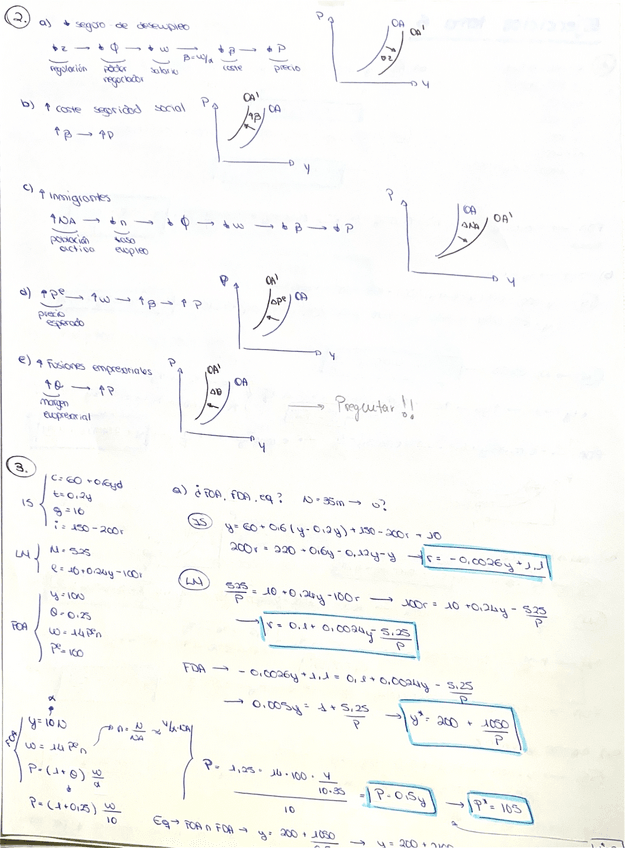 2. a) ↓ seguro de desempleo
↓z → ↓Φ → ↓w → ↓β → ↓P
β=w/α
regulación poder negociador salario coste precio
P OA OA' ↓z Y
b) ↑ coste seguridad social
↑β → ↑P
P OA' OA ↑β Y
c) ↑ inmigrantes
↑NA → ↓n → ↓Φ → ↓w → ↓β → ↓P
población activa tasa empleo
P OA OA' ΔNA Y
d) ↑Pᵉ → ↑w → ↑β → ↑P
precio esperado
P OA' OA ΔPᵉ Y
e) ↑ Fusiones empresariales
↑θ → ↑P
margen empresarial
P OA' OA Δθ Y
→ Preguntar!!
3.
IS { c=60+0.6yd
t=0.2y
g=10
i=150-200r
LM { M=525
l=10+0.24y-100r
FOA { y=10N
θ=0.25
w=14Pᵉn
Pᵉ=100
a) ¿FOA, FDA, eq? N=35m → u?
IS y=60+0.6(y-0.2y)+150-200r+10
200r=220+0.6y-0.12y-y → r=-0.0026y+1.1
LM 525/P=10+0.24y-100r → 100r=10+0.24y-525/P
→ r=0.1+0.0024y-5.25/P
FDA → -0.0026y+1.1=0.1+0.0024y-5.25/P
→ 0.005y=1+5.25/P → y*=200+1050/P
α
FOA { y=10N
w=14Pᵉn
P=(1+θ) w/α
P=(1+0.25) w/10
n=N/NA
P=1.25=14·100·y/10·35
10
= P=0.5y → P*=105
Eq → FOA∩FDA → y=200+1050/0.5y → y=200+